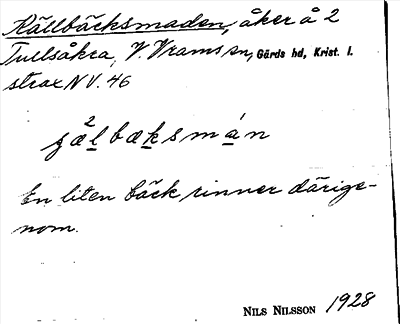 Källbäcksmaden, åker å 2
Tullsåkra, V. Vrams sn, Gärds hd, Krist. l.
strax NV. 46
2
ɟælbæksmán
En liten bäck rinner därige-
nom.
NILS NILSSON 1928